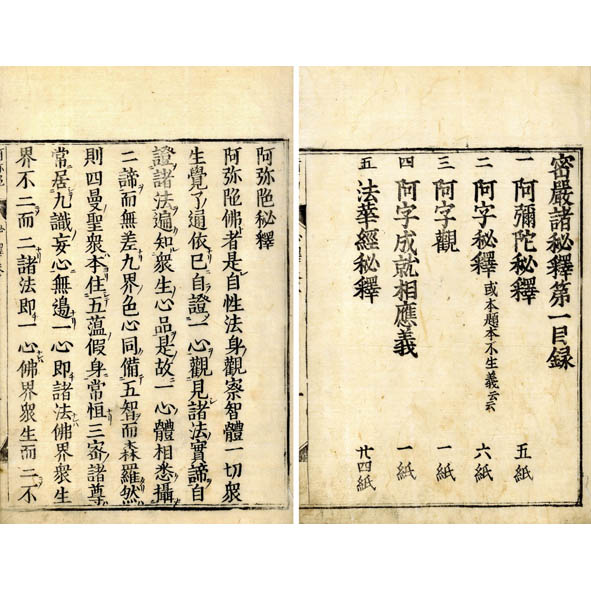 密嚴諸秘釋第一目録
一 阿彌陀秘釋 五紙
二 阿字秘釋 或本題本不生義云云 六紙
三 阿字觀 一紙
四 阿字成就相應義 一紙
五 法華經秘釋 廿四紙
阿弥陁秘釋
阿弥陁佛者是自性法身觀察智體一切衆
生覺了遍依巳自證一心觀見諸法實諦自
證諸法遍知衆生心品是故一心體相悉攝
二諦而無差九界色心同備五智而森羅然
則四曼聖衆本住五蘊假身常恒三密諸尊
常居九識妄心無邊一心即諸法佛界衆生
界不二而二諸法即一心佛界衆生而二不